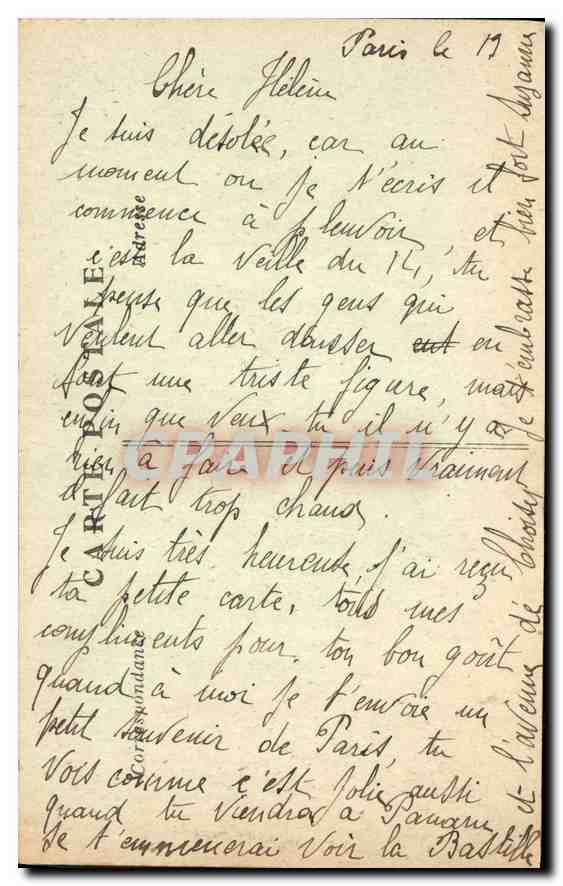 Paris le 19
Chère Hélène
Je suis désolée, car au
moment ou je t'écris il
commence à pleuvoir, et
c'est la veille du 14, tu
pense que les gens qui
veulent aller danser en
font une triste figure, mais
enfin que veux tu il n'y a
rien à faire et puis vraiment
il fait trop chaud.
Je suis très heureuse, j'ai reçu
ta petite carte, tous mes
compliments pour ton bon goût
quand à moi je t'envoie un
petit souvenir de Paris, tu
vois comme c'est joli, aussi
quand tu viendras à Paname
je t'emmenerai voir la Bastille
et l'avenue de Choisy je t'embrasse bien fort Suzanne
CARTE POSTALE
Correspondance
Adresse
CPAPHIL